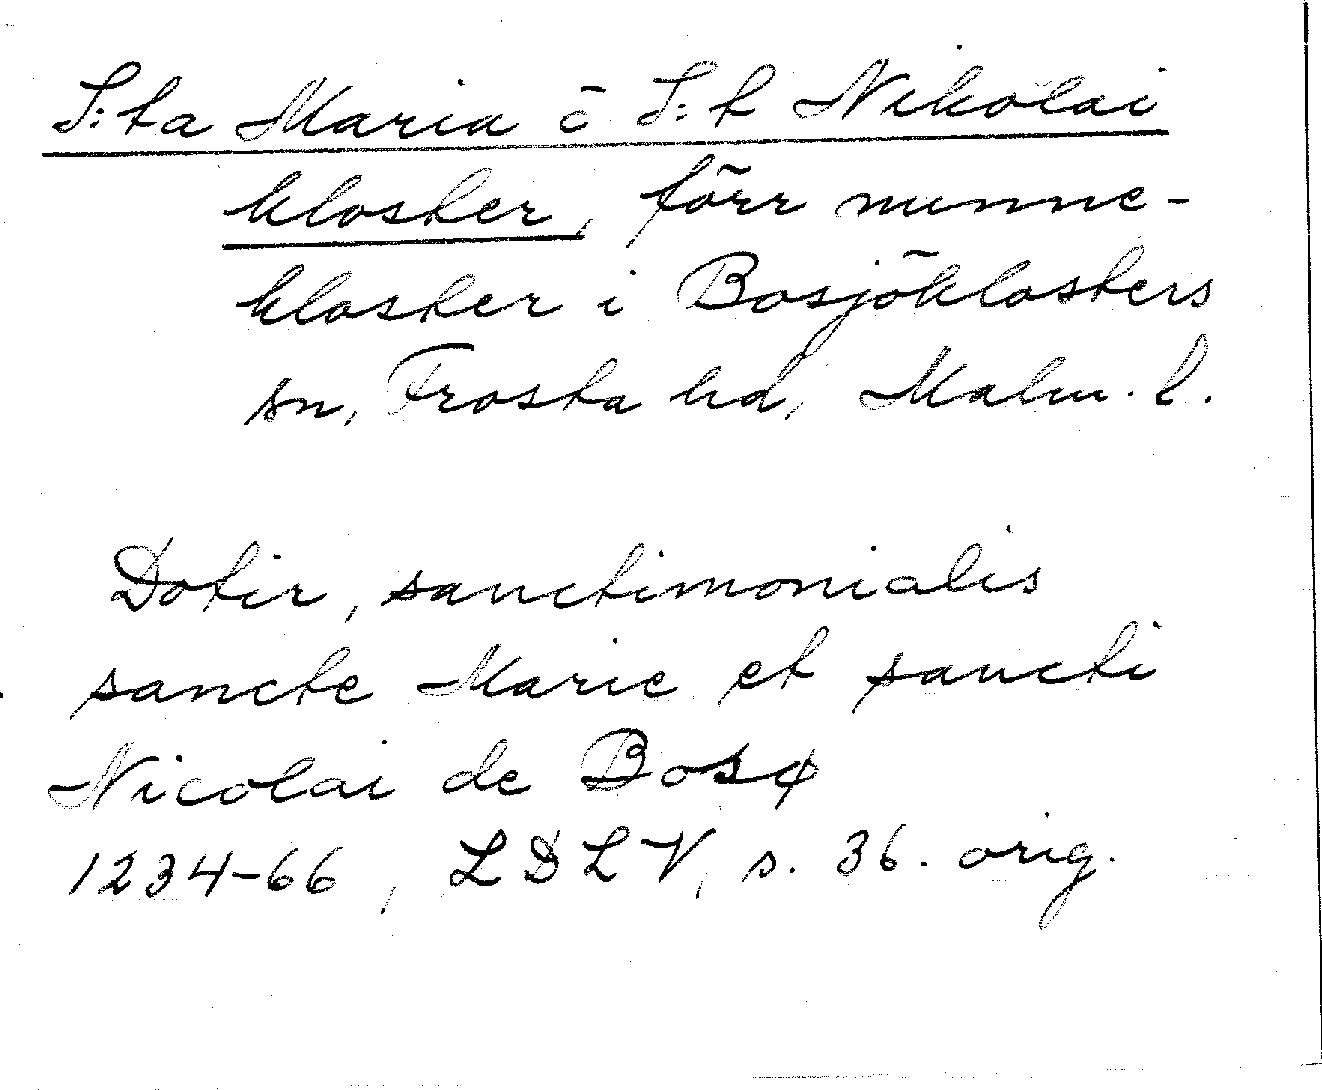 S:ta Maria o S:t Nikolai
kloster, förr nunne-
kloster i Bosjöklosters
sn, Frosta hd, Malm. l.
Dotir, sanctimonialis
sancte Marie et sancti
Nicolai de Bosø
1234-66, LDLV, s. 36. orig.